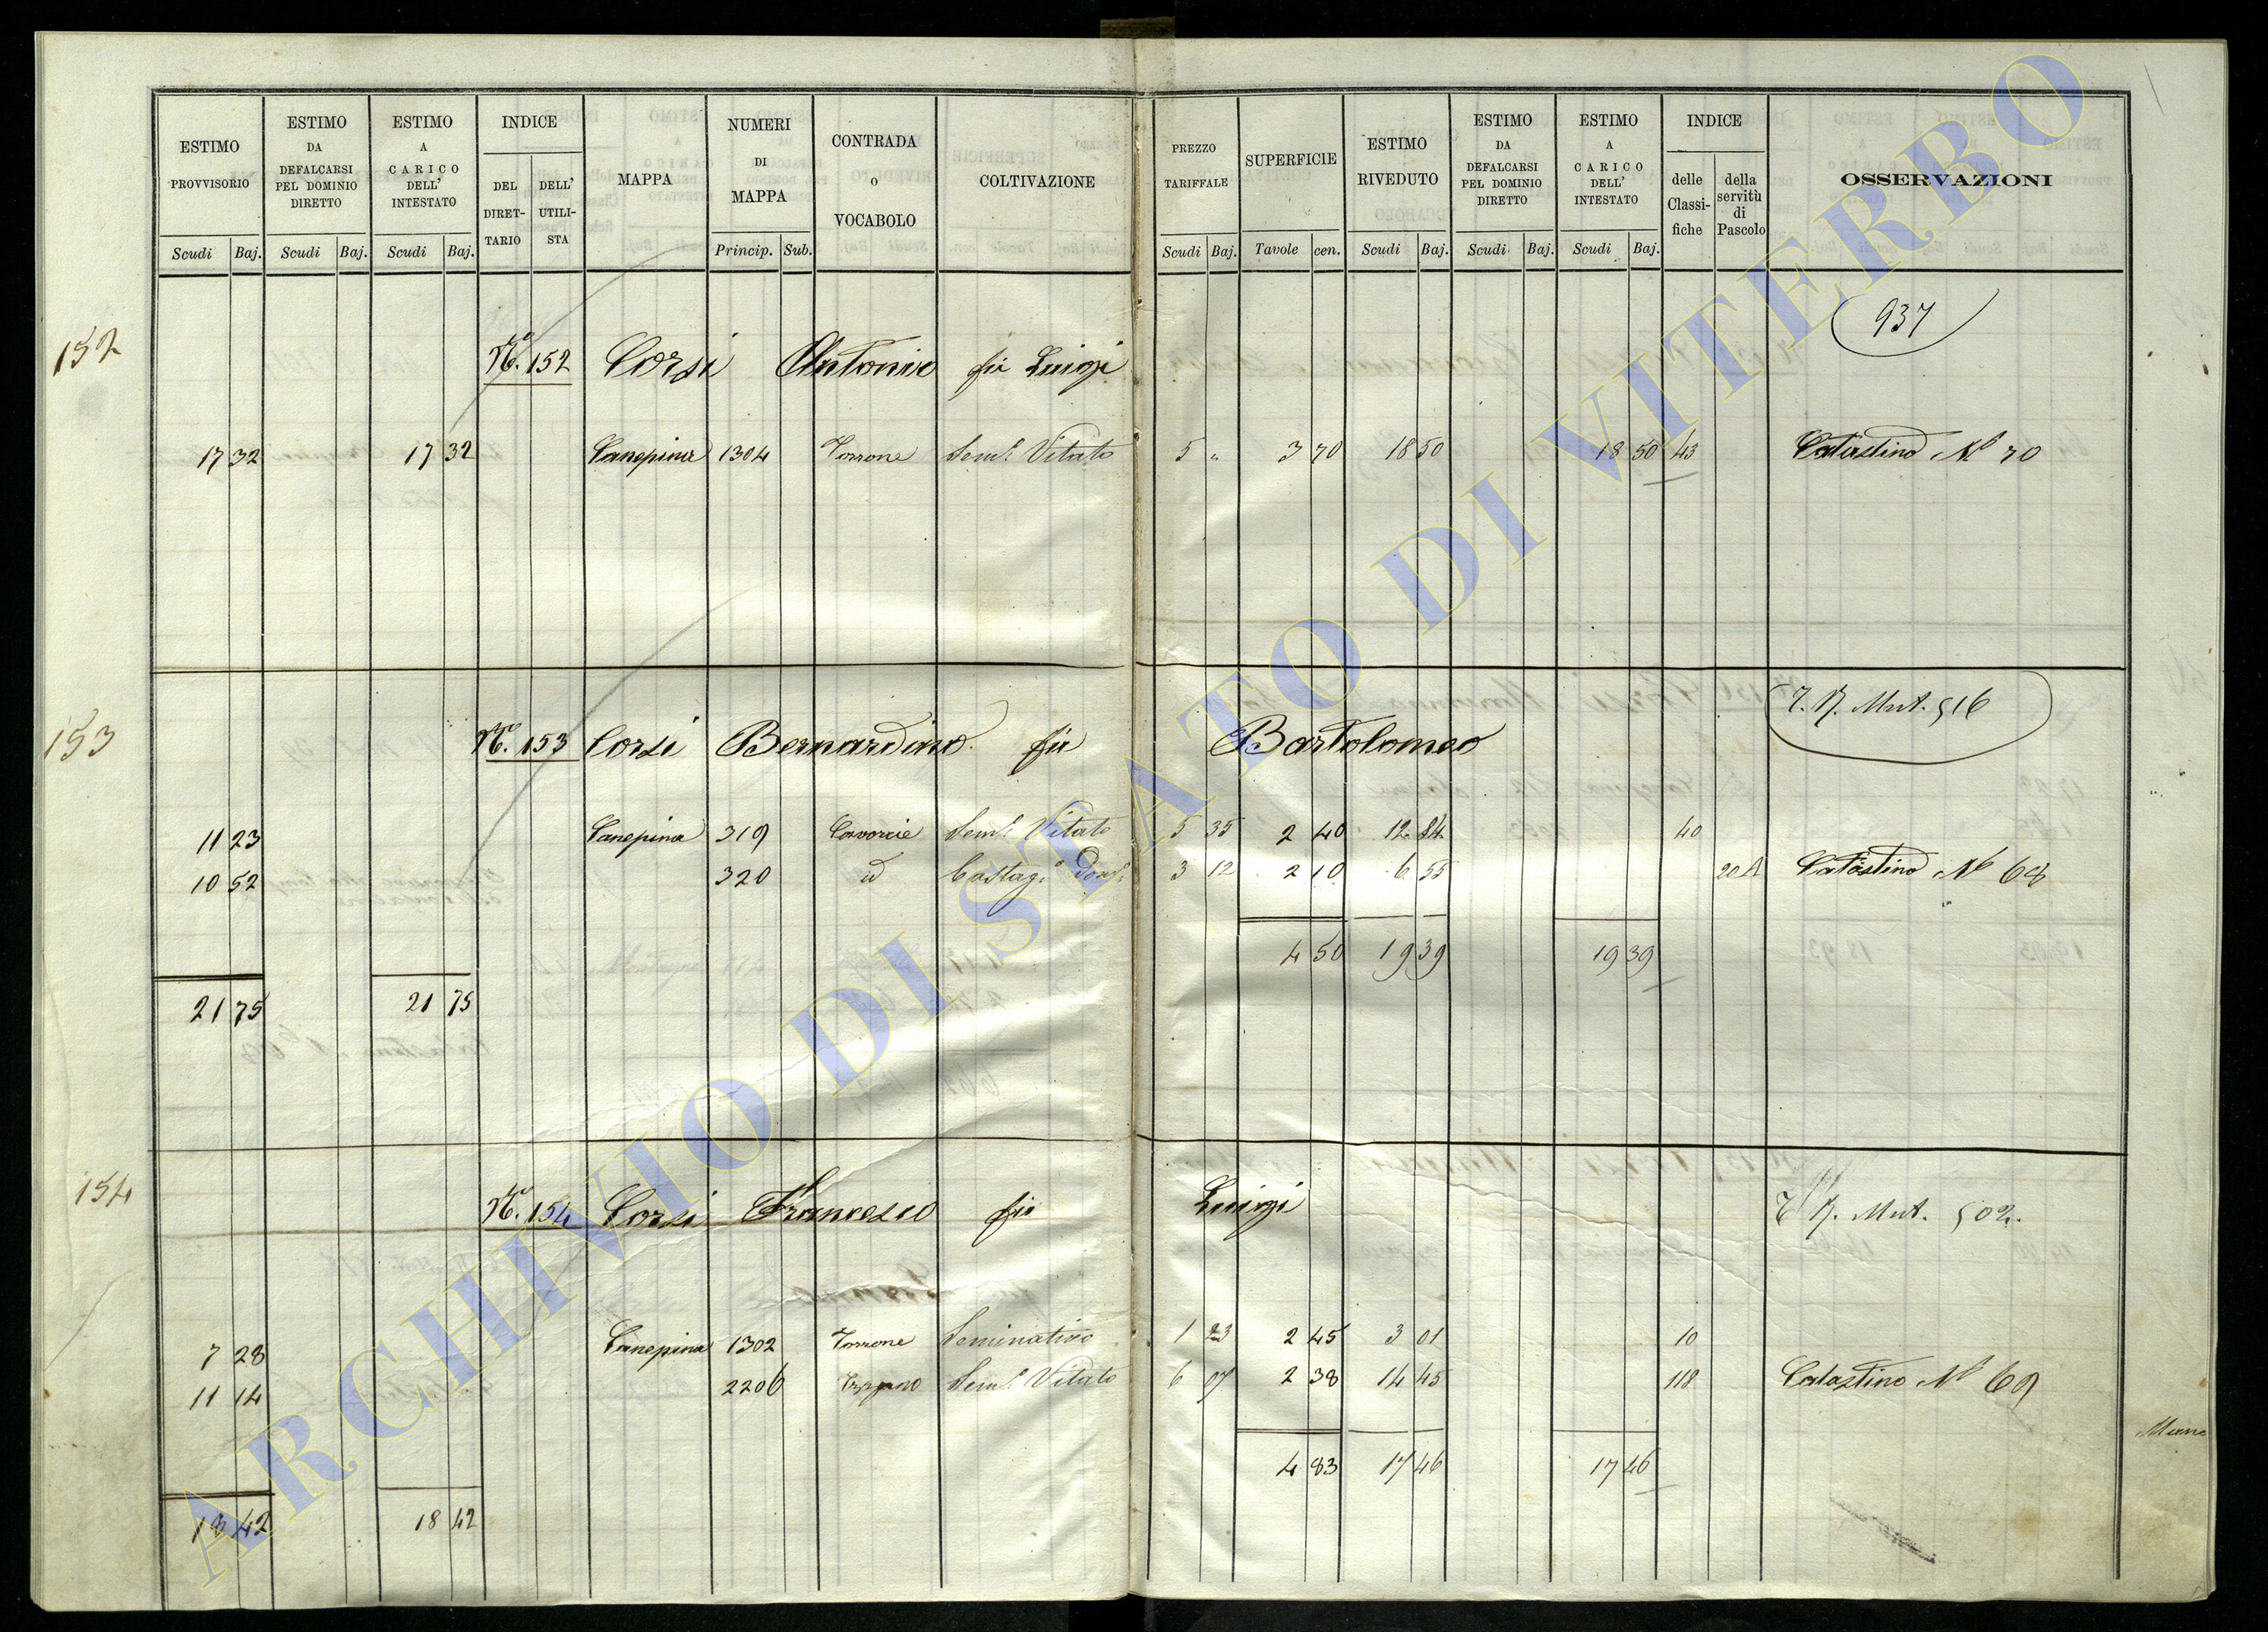 ESTIMO PROVVISORIO Scudi Baj.
ESTIMO DA DEFALCARSI PEL DOMINIO DIRETTO Scudi Baj.
ESTIMO A CARICO DELL' INTESTATO Scudi Baj.
INDICE DEL DIRET-TARIO DELL' UTILI-STA
MAPPA
NUMERI DI MAPPA Princip. Sub.
CONTRADA O VOCABOLO
COLTIVAZIONE
PREZZO TARIFFALE Scudi Baj.
SUPERFICIE Tavole cen.
ESTIMO RIVEDUTO Scudi Baj.
ESTIMO DA DEFALCARSI PEL DOMINIO DIRETTO Scudi Baj.
ESTIMO A CARICO DELL' INTESTATO Scudi Baj.
INDICE delle Classi-fiche della servitù di Pascolo
OSSERVAZIONI
937
152 No. 152 Corsi Antonio fu Luigi
17 32 17 32 Canepina 1304 Torrone Sem.° Vitato 5 " 3 70 18 50 18 50 43 Catastino N° 70
T. N. Mut. 516
153 No. 153 Corsi Bernardino fu Bartolomeo
11 23 Canepina 319 Sem.° Vitato 5 35 2 40 12 84 40
10 52 320 id Castag.° Dom.° 3 12 2 10 6 55 20 A Catastino N° 68
4 50 19 39 19 39
21 75 21 75
154 No. 154 Corsi Francesco fu Luigi N. Mut. 502.
7 28 Canepina 1302 Torrone Seminativo 1 23 2 45 3 01 10
11 14 2206 Sem.° Vitato 6 07 2 38 14 45 118 Catastino N° 69
4 83 17 46 17 46
18 42 18 42
ARCHIVIO DI STATO DI VITERBO